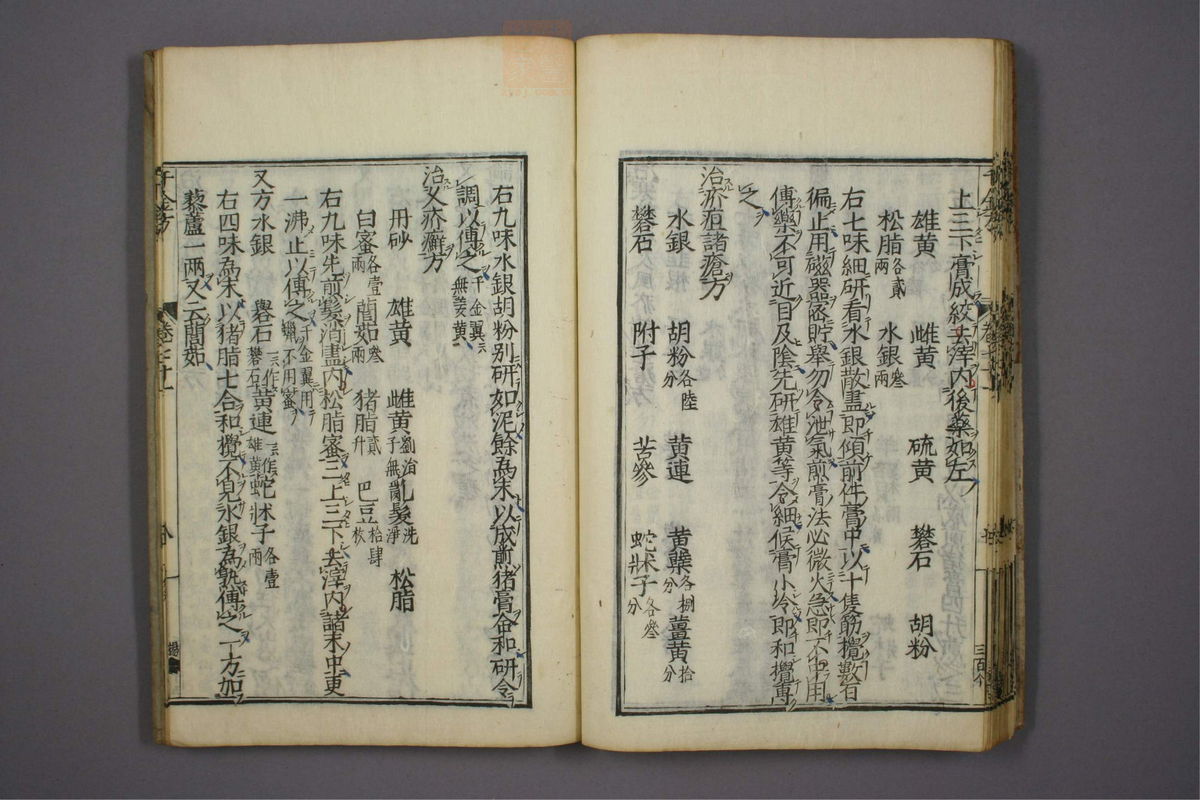 上三下膏成絞去滓内後藥如左
雄黄 雌黄 硫黄 礬石 胡粉
松脂各貳兩 水銀叁兩
右七味細研看水銀散盡即傾前件膏中以十隻筯攪數百
徧止用磁器貯舉勿令泄氣煎膏法必微火急即不中用
傅藥不可近目及陰先研雄黄等令細候膏小冷即和攪傅
之
治疥疽諸瘡方
水銀 胡粉各陸分 黄連 黄蘗各捌分 薑黄拾分
礬石 附子 苦參 蛇牀子各叁分
右九味水銀胡粉别研如泥餘為末以成煎猪膏合和研令
調以傅之千金翼云無薑黄
治久疥癬方
丹砂 雄黄 雌黄劉涓子無 亂髮洗淨 松脂
白蜜各壹兩 䕡茹叁兩 猪脂貳升 巴豆拾肆枚
右九味先煎髮消盡内松脂蜜三上三下去滓内諸末中更
一沸止以傅之千金翼用蠟不用蜜
又方水銀 礜石一作礬石 黄連一作雄黄 蛇牀子各壹兩
右四味為末以猪脂七合和攪不見水銀為熟傅之一方加
藜蘆一兩又云䕡茹
千金方
卷二十二